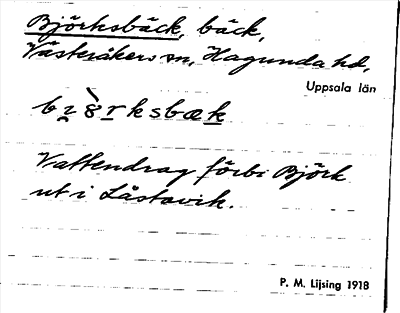 Björksbäck, bäck,
Västeråkers sn, Hagunda hd,
Uppsala län
Vattendrag förbi Björk
ut i Låstavik.
P. M. Lijsing 1918